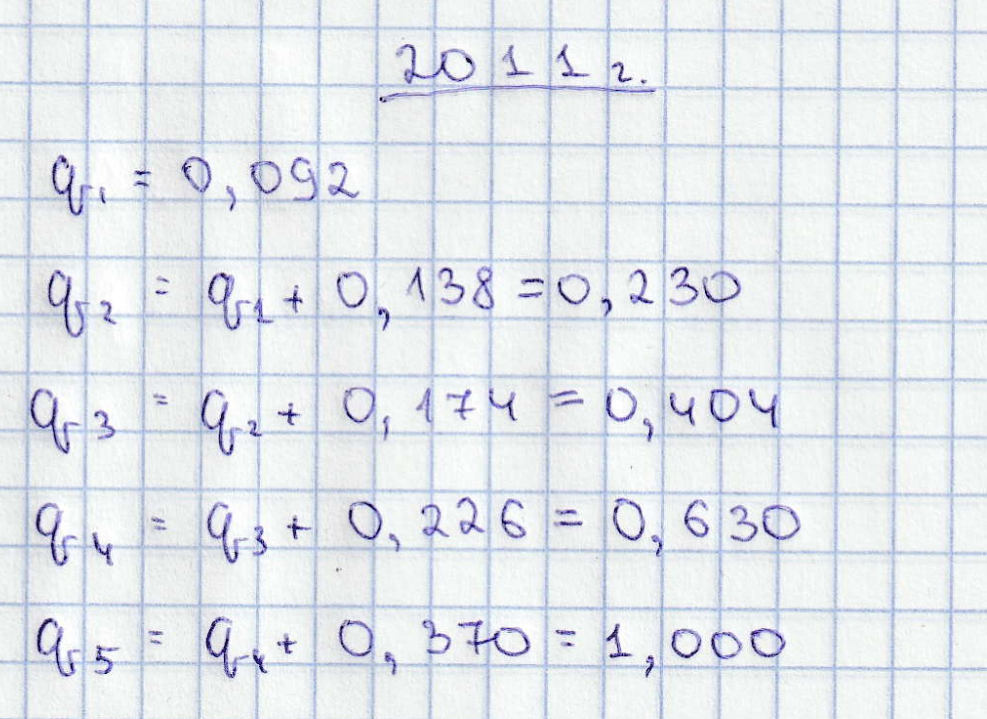 2011 г.
q₁ = 0,092
q₂ = q₁ + 0,138 = 0,230
q₃ = q₂ + 0,174 = 0,404
q₄ = q₃ + 0,226 = 0,630
q₅ = q₄ + 0,370 = 1,000